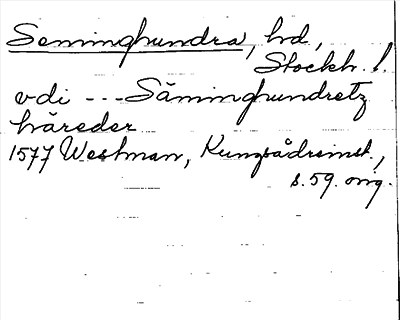 Seminghundra, hd,
Stockh. l.
vdi --- Säminghundretz
häreder
1577 Westman, Kungsådreinst.,
s. 59. orig.